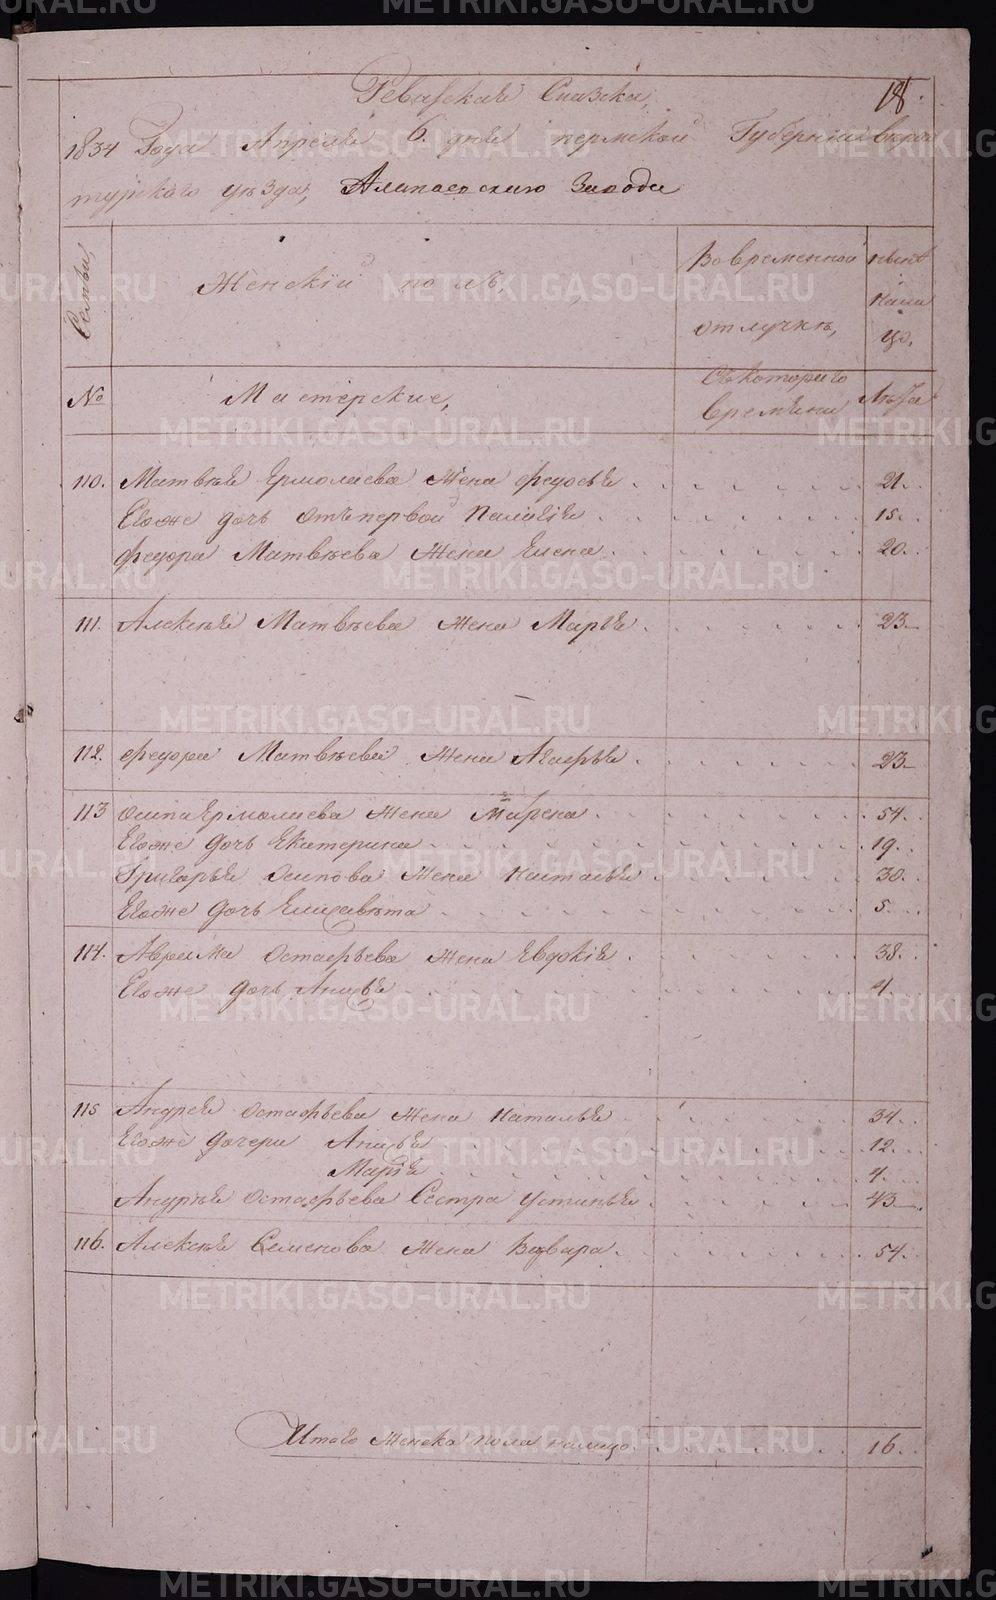 18.
Ревизская Сказка,
1834 Года Апреля 6. дня пермской Губернии верхо
турского уезда, Алапаевскаго завода
Семьи,
Женский полъ,
Во временной
отлучке,
ныне
нали
цо.
№
Мастерские,
Съ котораго
времени
Лета
110. Матвея Ермолаева жена федосья 21.
Егоже дочь отъ первой Пелагия 15.
федора Матвеева жена Елена 20.
111. Алексея Матвеева жена Марья 23
112. федора Матвеева жена Агафья 23
113 осипа Ермолаева жена Марена 54.
Егоже дочь Екатерина 19.
Григорья осипова жена Наталья 30.
Егоже дочь Елизавета 5.
114. Аврама Остафьева жена Евдокия 38.
Егоже дочь Анисья 4
115 Андрея Остафьева жена Наталья 34.
Егоже дочери Анисья 12.
Марья 4.
Андрея Остафьева Сестра Устинья 43
116. Алексея Семенова жена Варвара 54.
Итого женска пола налицо 16.
METRIKI.GASO-URAL.RU